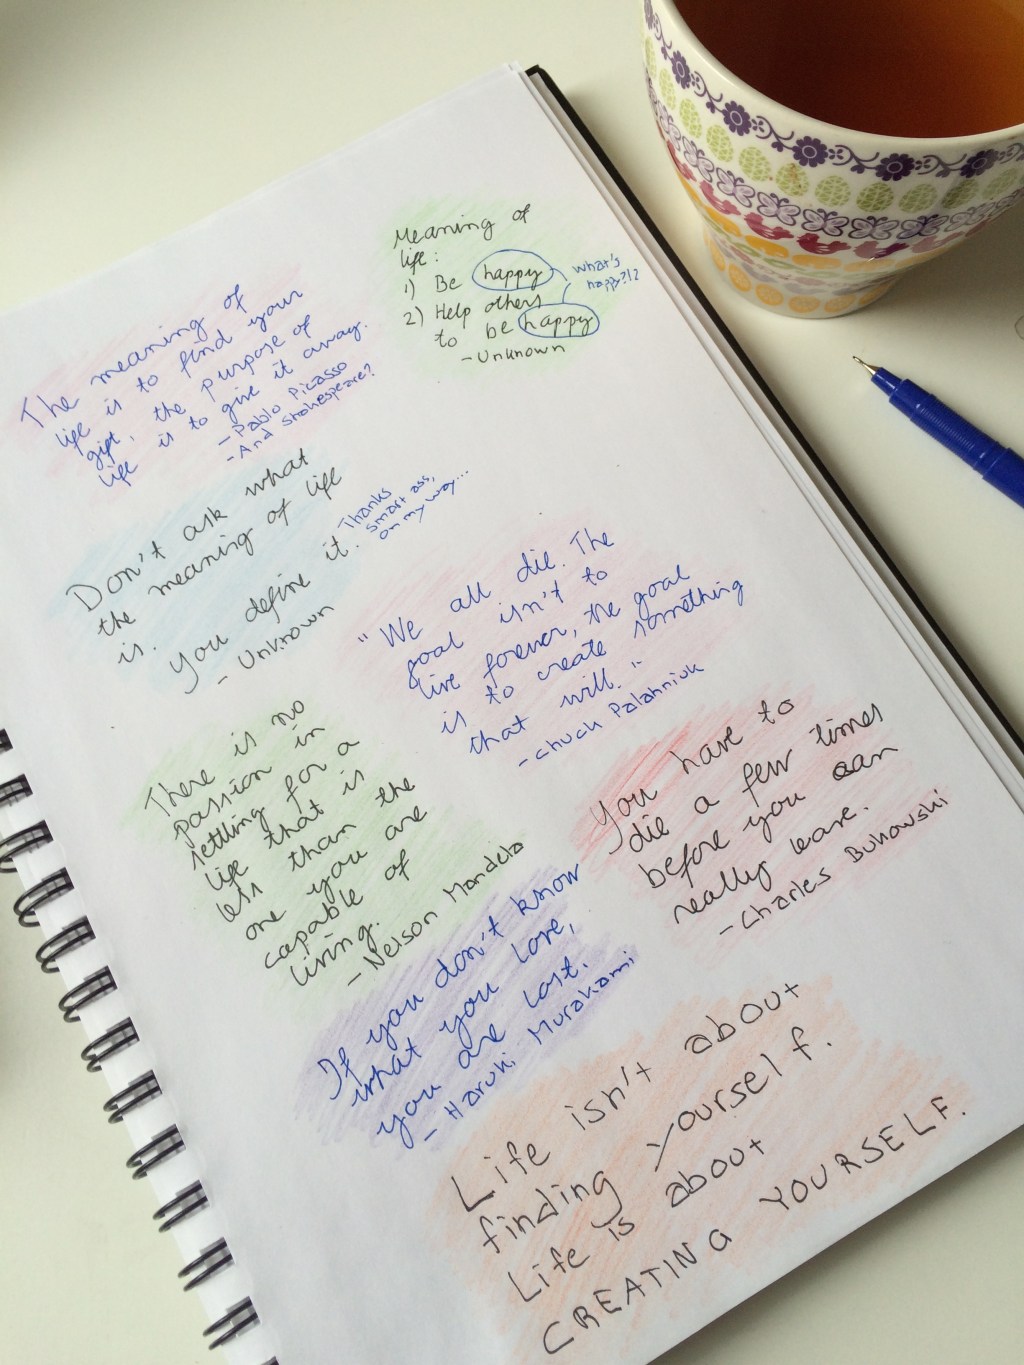 Meaning of
life:
1) Be happy
2) Help others
to be happy
- Unknown
what's
happy?!?
The meaning of
life is to find your
gift, the purpose of
life is to give it away.
- Pablo Picasso
- And Shakespeare?
Don't ask what
the meaning of life
is.
you define it.
- Unknown
Thanks
smart ass,
on my way...
"We all die. The
goal isn't to
live forever, the goal
is to create something
that will."
- Chuck Palahniuk
There is no
passion in
settling for a
life that is
less than the
one you are
capable of
living.
- Nelson Mandela
You have to
die a few times
before you can
really leave.
- Charles Bukowski
If you don't know
what you love,
you are lost.
- Haruki Murakami
Life isn't about
finding yourself.
Life is about
CREATING YOURSELF.